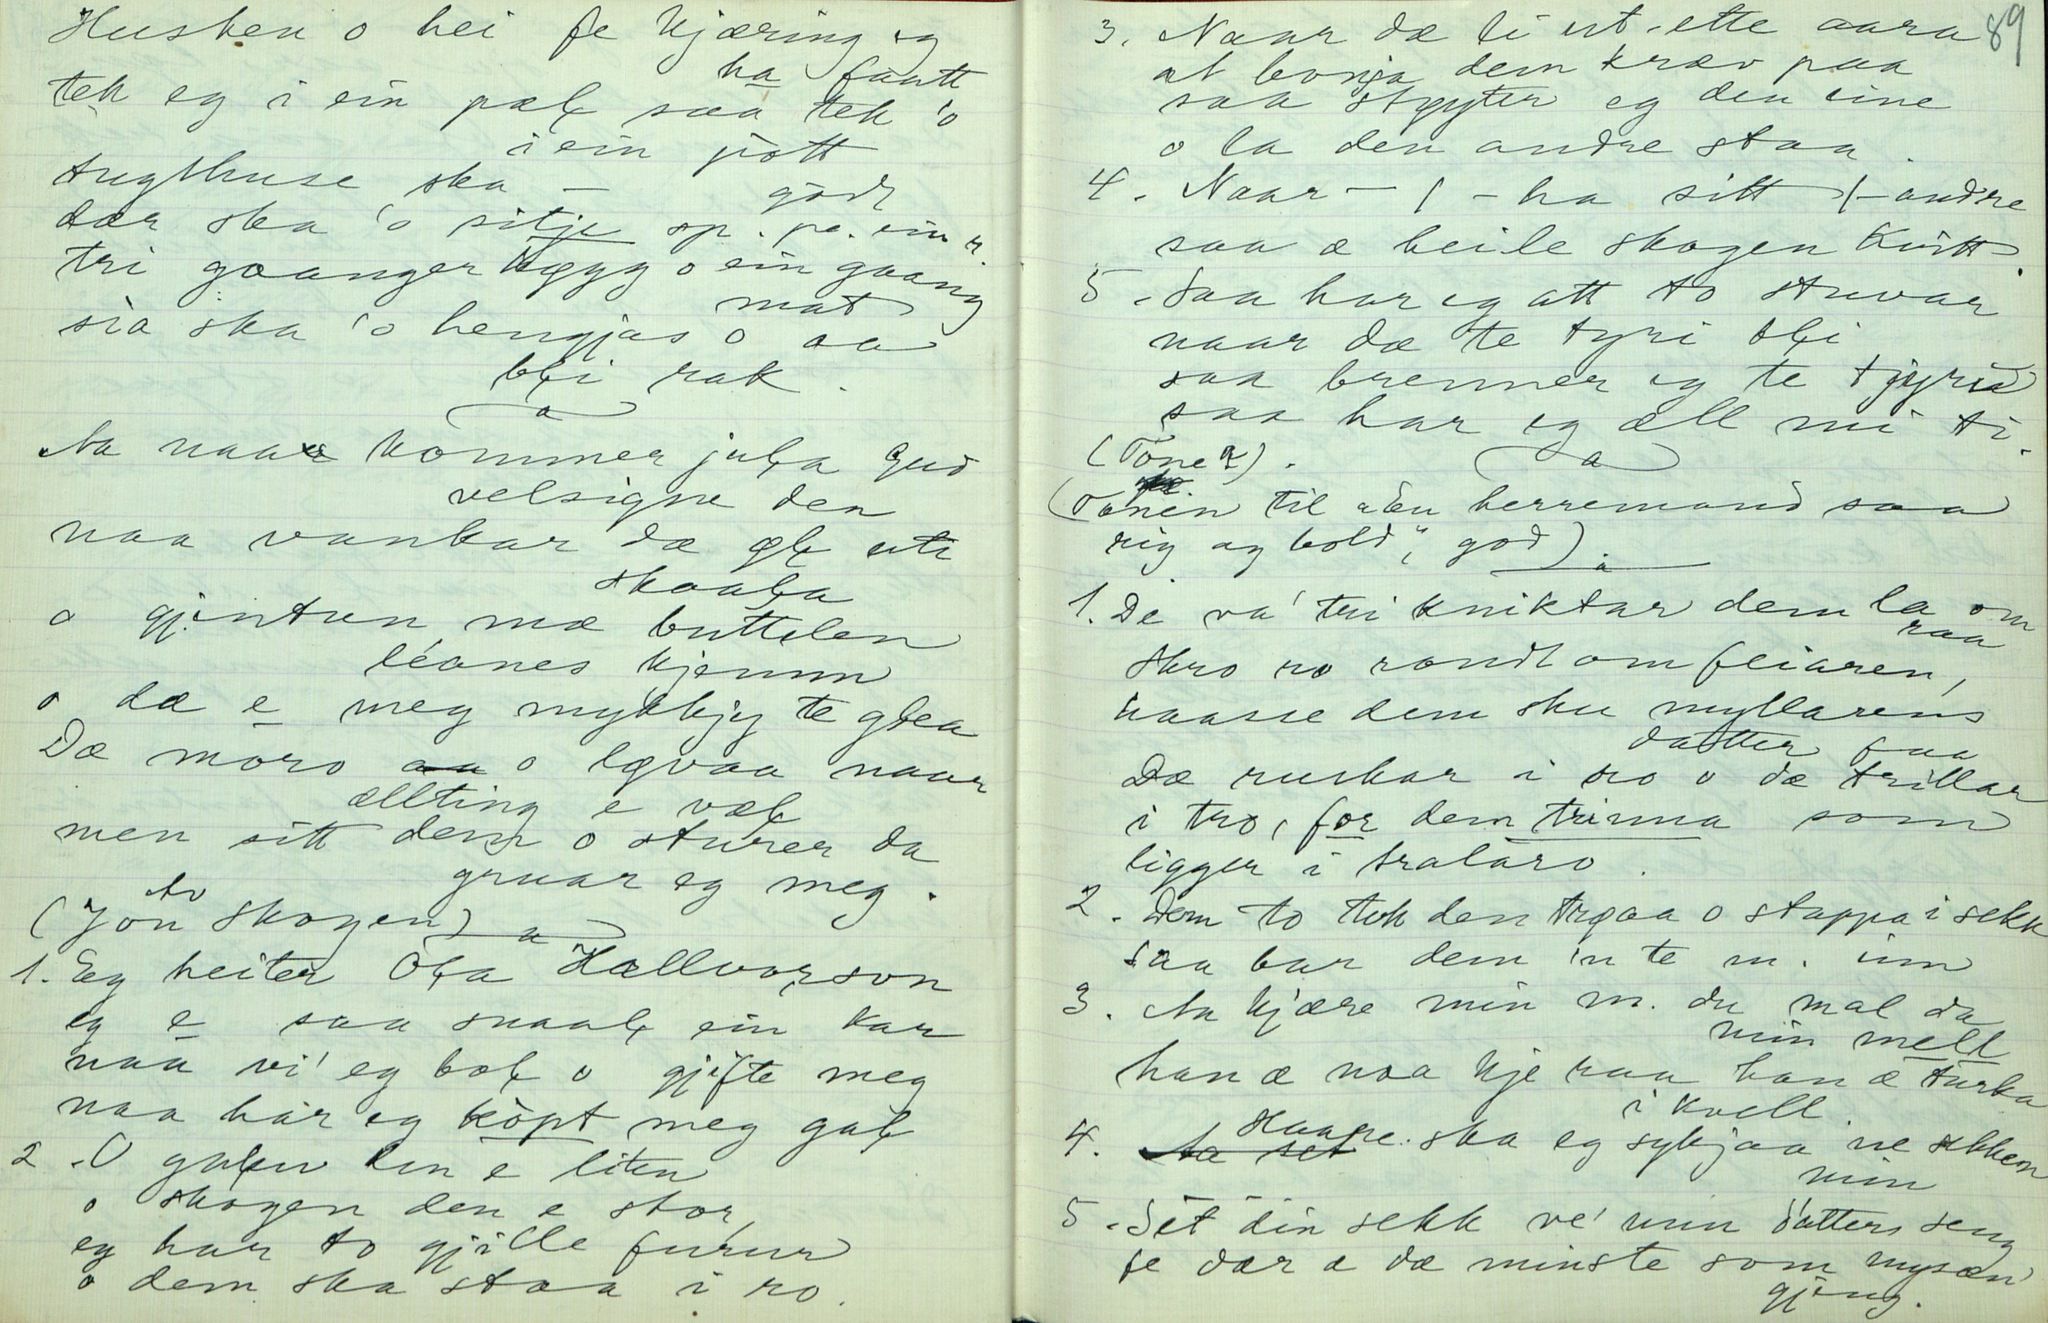 Husken o hei fe kjæring eg
ha faatt
tek eg i ein pæł saa tek 'o
i ein pott
tugthuse ska —
godt
dær ska 'o sitje op. pe. ein
tri gaanger hogg o ein gaang
mat
sia ska 'o hengjas o aa
błi rak.
Aa naar kommer juła gud
velsigne den
naa vankar dæ øł uti
skaała
o gjentun mæ buttelen
leanes kjemm
o dæ e meg mykkjy te głea
Dæ moro o løvaa naar
ællting e væł
men sitt dem o sturer da
gruar eg meg.
(Jon to Skogen)
1. Eg heiter Oła Hællvorson
eg e saa snaał ein kar
naa vi' eg boł o gjifte meg
naa har eg köpt meg gał
2. O gałen den e liten
o skogen den e stor
eg har to gjille furur
o dem ska staa i ro.
89
3. Naar dæ li ut-ette aara
at bonja dem kræv paa
saa styyter eg den eine
o la den andre staa.
4. Naar — / – ha sitt /– andre
saa æ heile skogen kvitt.
5. Saa har eg att to stuvar
naar dæ te tyri błi
saa brenner eg te tjyru
saa har eg æll mi ti.
(Töne 2).
(Tonen til "En herremand saa
rig og bold", god).
1. De va' tri kniktar dem la om
raa
skro ro rondt om feiaren,
haasse dem sku myllarens
dotter faa
Dæ ruskar i ro o dæ trillar
i tro, for dem trinna som
ligger i tralaro.
2. Dem to tok den trøaa o stappa i sekk
saa bar dem 'n te m. inn
3. Aa kjære min m. du mal da
min mell
han æ noa kje raa han æ turka
i kvell.
4. Haare. ska eg sykjaa ne sekken
min
5. Set din sekk ve' min dotters seng
fe dær æ dæ minste som mysæn
gjeng.